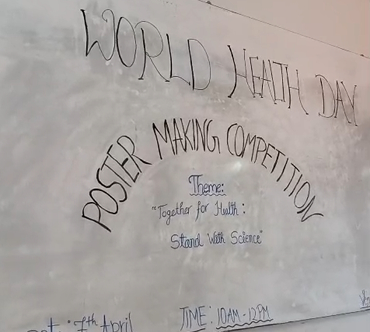 WORLD HEALTH DAY
POSTER MAKING COMPETITION
Theme:
"Together for Health:
Stand With Science"
7th April TIME: 10AM-12PM